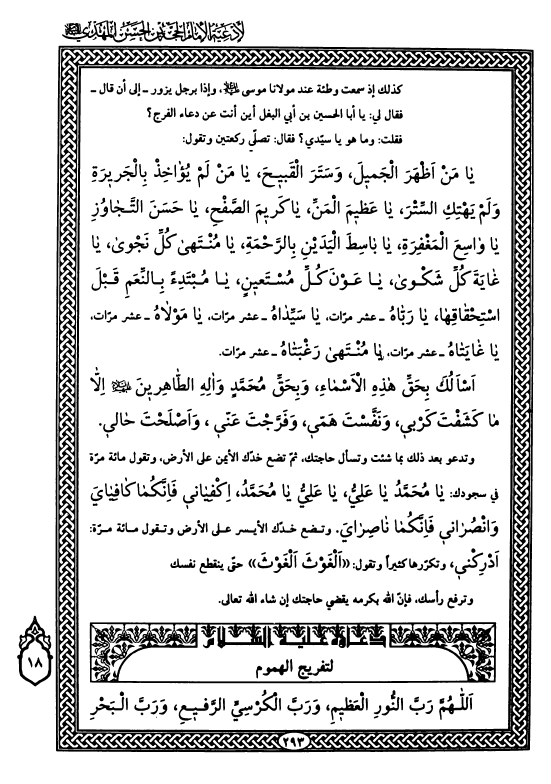 لأدعية الإمام الحجّة بن الحسن المهدي عليه السلام
كذلك إذ سمعت وطئة عند مولانا موسى عليه السلام، وإذا برجل يزور ـ إلى أن قال ـ
فقال لي: يا أبا الحسين بن أبي البغل أين أنت عن دعاء الفرج؟
فقلت: وما هو يا سيّدي؟ فقال: تصلّي ركعتين وتقول:
يٰا مَنْ اَظْهَرَ الْجَمٖيلَ، وَسَتَرَ الْقَبٖيحَ، يٰا مَنْ لَمْ يُؤٰاخِذْ بِالْجَرٖيرَةِ
وَلَمْ يَهْتِكِ السِّتْرَ، يٰا عَظٖيمَ الْمَنِّ، يٰا كَرٖيمَ الصَّفْحِ، يٰا حَسَنَ التَّجٰاوُزِ
يٰا وٰاسِعَ الْمَغْفِرَةِ، يٰا بٰاسِطَ الْيَدَيْنِ بِالرَّحْمَةِ، يٰا مُنْتَهىٰ كُلِّ نَجْوىٰ، يٰا
غٰايَةَ كُلِّ شَكْوىٰ، يٰا عَوْنَ كُلِّ مُسْتَعٖينٍ، يٰا مُبْتَدِءً بِالنِّعَمِ قَبْلَ
اسْتِحْقٰاقِهٰا، يٰا رَبّٰاهُ ـ عشر مرّات، يٰا سَيِّدٰاهُ ـ عشر مرّات، يٰا مَوْلٰاهُ ـ عشر مرّات،
يٰا غٰايَتٰاهُ ـ عشر مرّات، يٰا مُنْتَهىٰ رَغْبَتٰاهُ ـ عشر مرّات.
اَسْاَلُكَ بِحَقِّ هٰذِهِ الْاَسْمٰاءِ، وَبِحَقِّ مُحَمَّدٍ وَاٰلِهِ الطّٰاهِرٖينَ عليهم السلام اِلّٰا
مٰا كَشَفْتَ كَرْبٖي، وَنَفَّسْتَ هَمّٖي، وَفَرَّجْتَ عَنّٖي، وَاَصْلَحْتَ حٰالٖي.
وتدعو بعد ذلك بما شئت وتسأل حاجتك، ثمّ تضع خدّك الأيمن على الأرض، وتقول مائة مرّة
في سجودك: يٰا مُحَمَّدُ يٰا عَلِيُّ، يٰا عَلِيُّ يٰا مُحَمَّدُ، اِكْفِيٰانٖي فَاِنَّكُمٰا كٰافِيٰايَ
وَانْصُرٰانٖي فَاِنَّكُمٰا نٰاصِرٰايَ. وتضع خدّك الأيسر على الأرض وتقول مائة مرّة:
اَدْرِكْنٖي، وتكرّرها كثيراً وتقول: «اَلْغَوْثَ اَلْغَوْثَ» حتّى ينقطع نفسك
وترفع رأسك، فإنّ الله بكرمه يقضي حاجتك إن شاء الله تعالى.
دعاؤه عليه السلام
لتفريج الهموم
١٨
اَللّٰهُمَّ رَبَّ النُّورِ الْعَظٖيمِ، وَرَبَّ الْكُرْسِيِّ الرَّفٖيعِ، وَرَبَّ الْبَحْرِ
٢٩٣